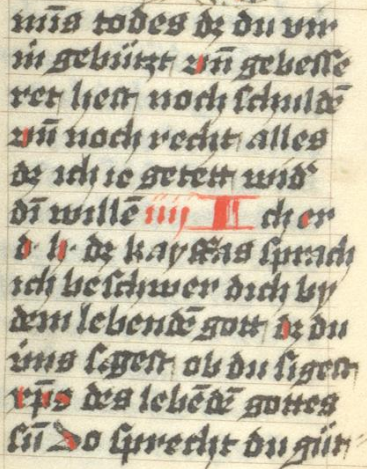 mīs todes dz du vur
in gebützt vn̄ gebesse
ret hest noch schuldē
vn̄ noch recht alles
dz ich ie getett wid'
dī willē iiij Ich er
d h dz kayffas sprach
ich beschwer dich by
dem lebendē gott dz du
vns sagest ob du sigest
xp̄s des lebēdē gottes
sū So sprecht du güt